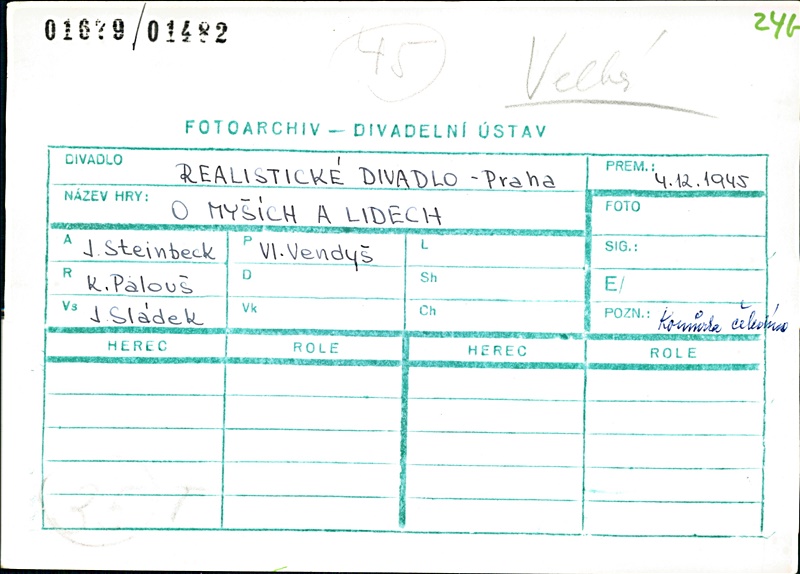 01679/01482
45
Velká
246
FOTOARCHIV — DIVADELNÍ ÚSTAV
DIVADLO REALISTICKÉ DIVADLO - Praha
PREM.: 4.12.1945
NÁZEV HRY: O MYŠÍCH A LIDECH
FOTO
A J. Steinbeck P Vl. Vendyš L
SIG.:
R K. Palouš D Sh
E/
Vs J. Sládek Vk Ch
POZN.: Komůrka čeledína
HEREC ROLE HEREC ROLE